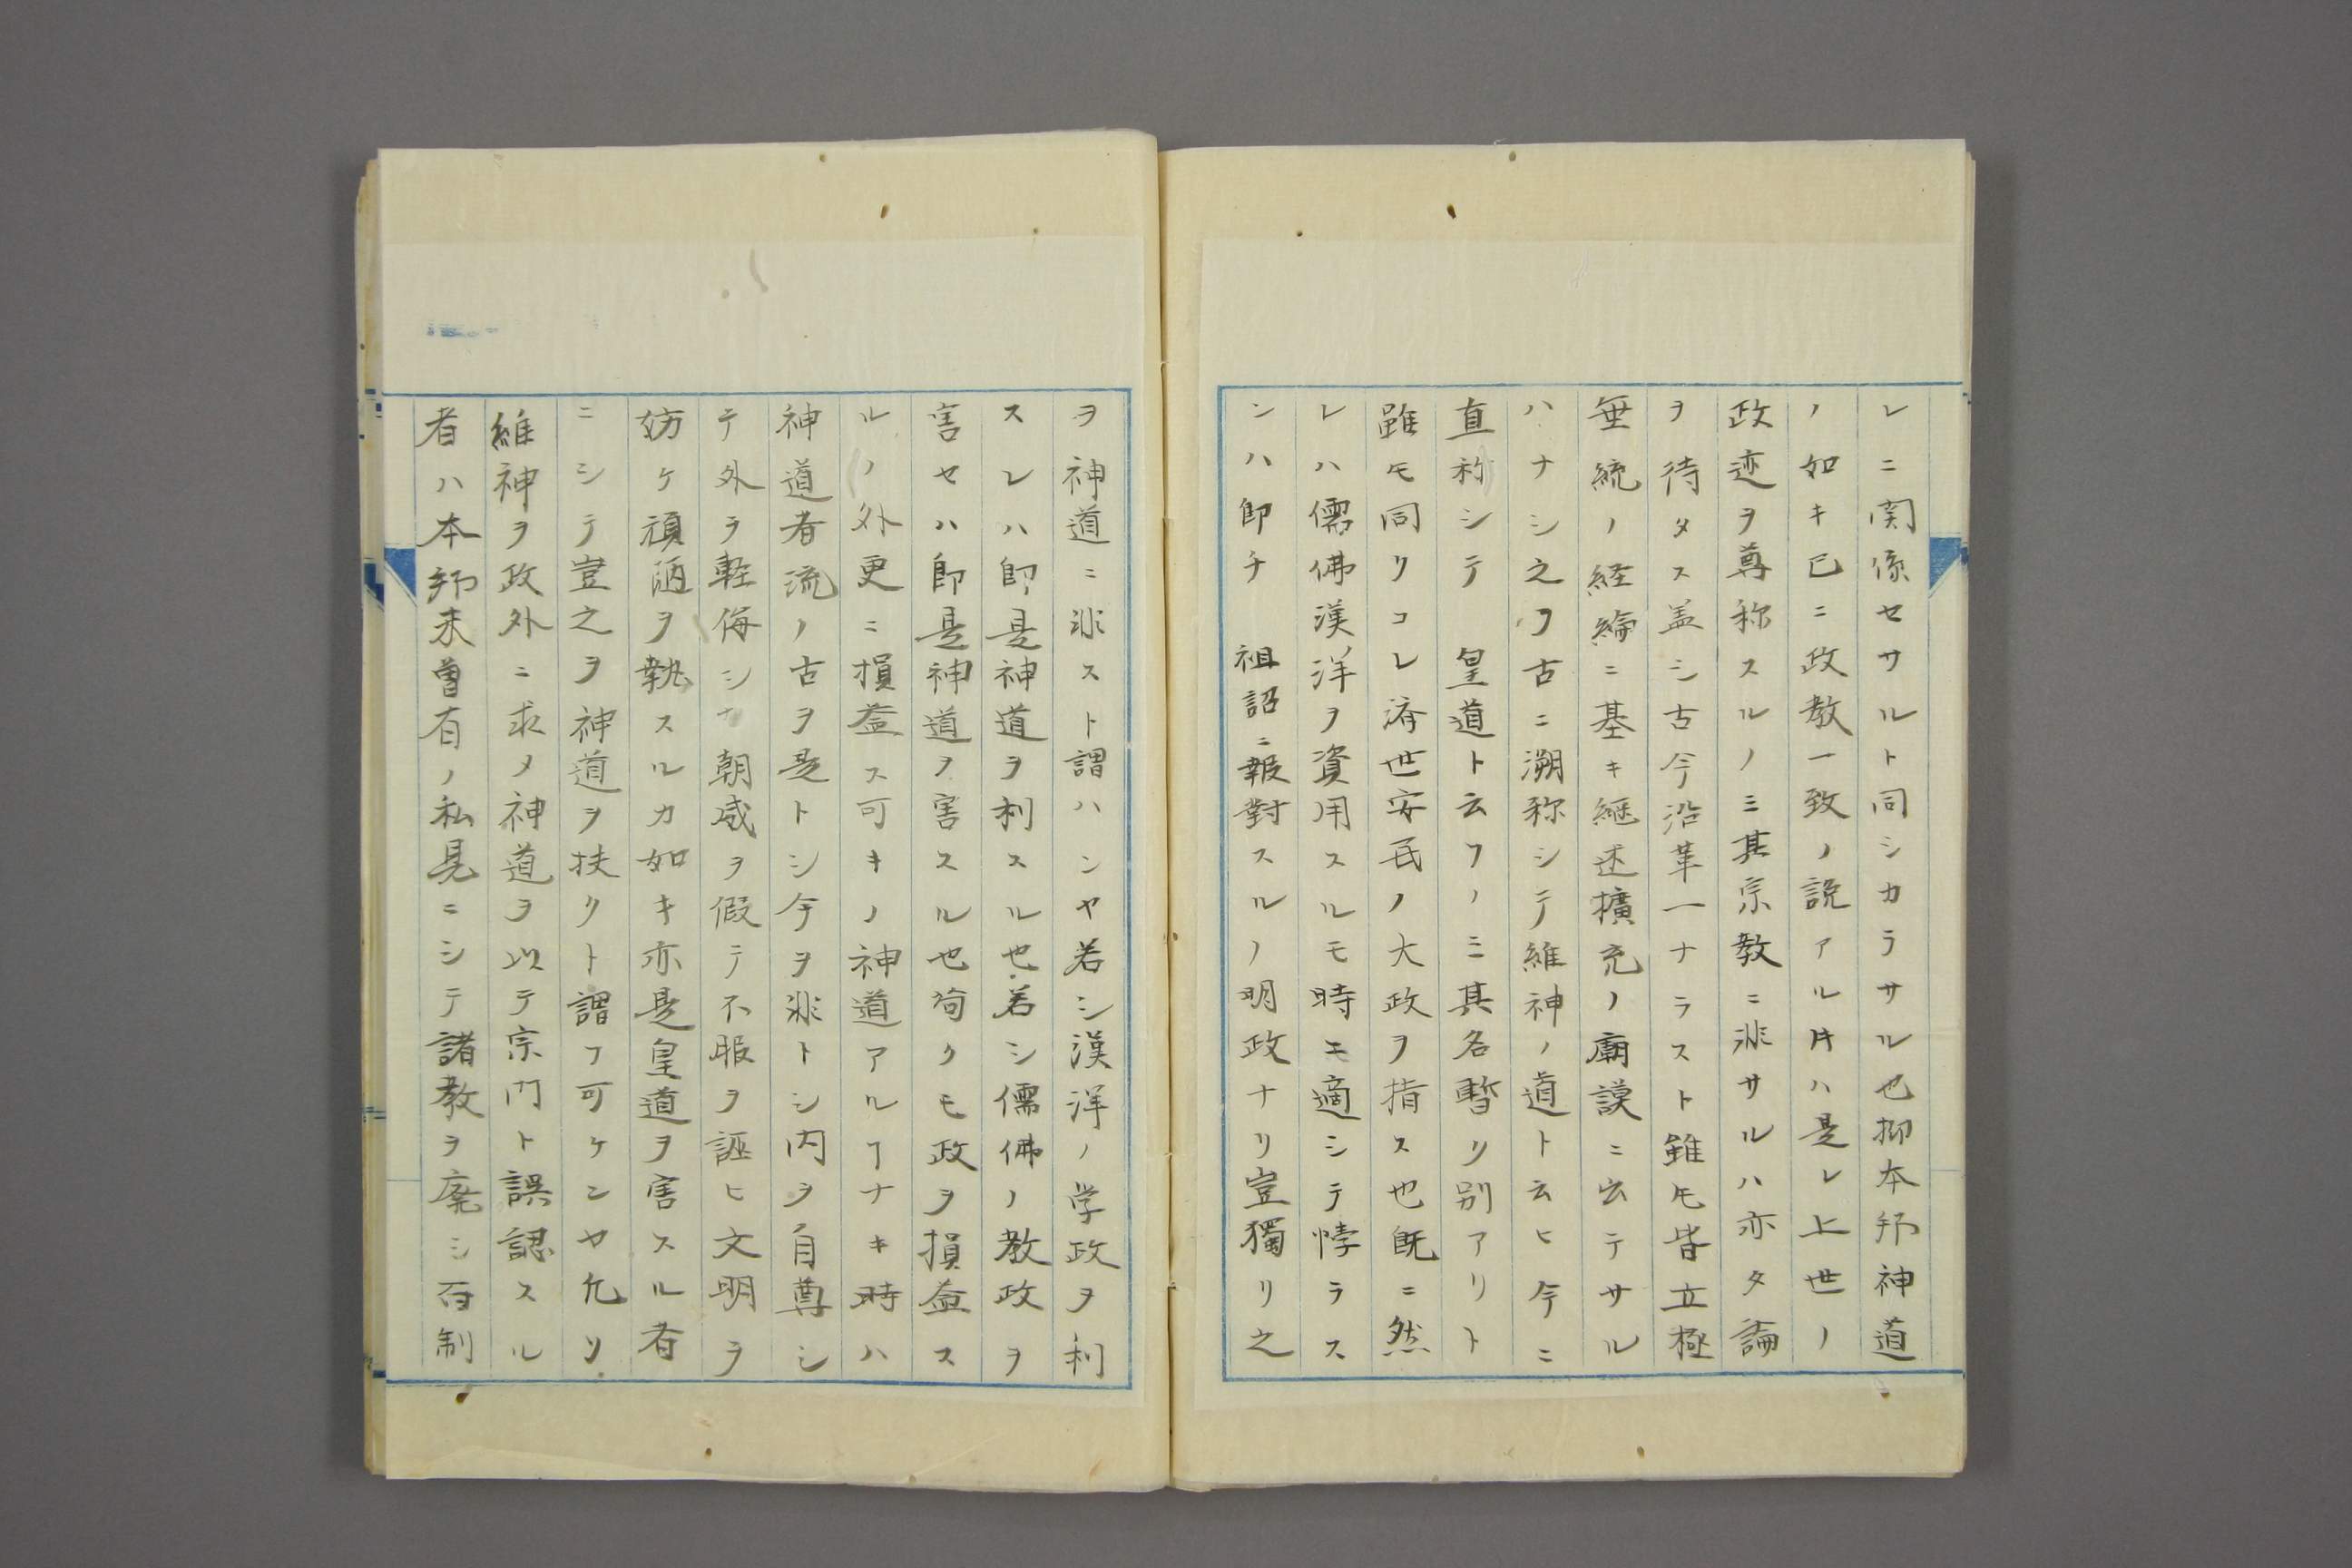 レニ関係セサルト同シカラサル也抑本邦神道
ノ如キ已ニ政教一致ノ説アル片ハ是レ上世ノ
政迹ヲ尊称スルノミ其宗教ニ非サルハ亦タ論
ヲ待タス盖シ古今沿革一ナラスト雖モ皆立極
垂統ノ経綸ニ基キ継述擴充ノ廟謨ニ出テサル
ハナシ之ヲ古ニ溯称シテ維神ノ道ト云ヒ今ニ
直称シテ 皇道ト云フノミ其名暫ク別アリト
雖モ同クコレ済世安民ノ大政ヲ指ス也既ニ然
レハ儒佛漢洋ヲ資用スルモ時モ適シテ悖ラス
ンハ即チ 祖詔ニ報對スルノ明政ナリ豈獨リ之
ヲ神道ニ非スト謂ハンヤ若シ漢洋ノ学政ヲ利
スレハ即是神道ヲ利スル也若シ儒佛ノ教政ヲ
害セハ即是神道ヲ害スル也苟クモ政ヲ損益ス
ルノ外更ニ損益ス可キノ神道アルヿナキ時ハ
神道者流ノ古ヲ是トシ今ヲ非トシ内ヲ自尊シ
テ外ヲ軽侮シ 朝威ヲ假テ不服ヲ誣ヒ文明ヲ
妨ケ頑陋ヲ執スルカ如キ亦是皇道ヲ害スル者
ニシテ豈之ヲ神道ヲ扶クト謂フ可ケンヤ凢ソ
維神ヲ政外ニ求メ神道ヲ以テ宗門ト誤認スル
者ハ本邦未曽有ノ私見ニシテ諸教ヲ廃シ百制